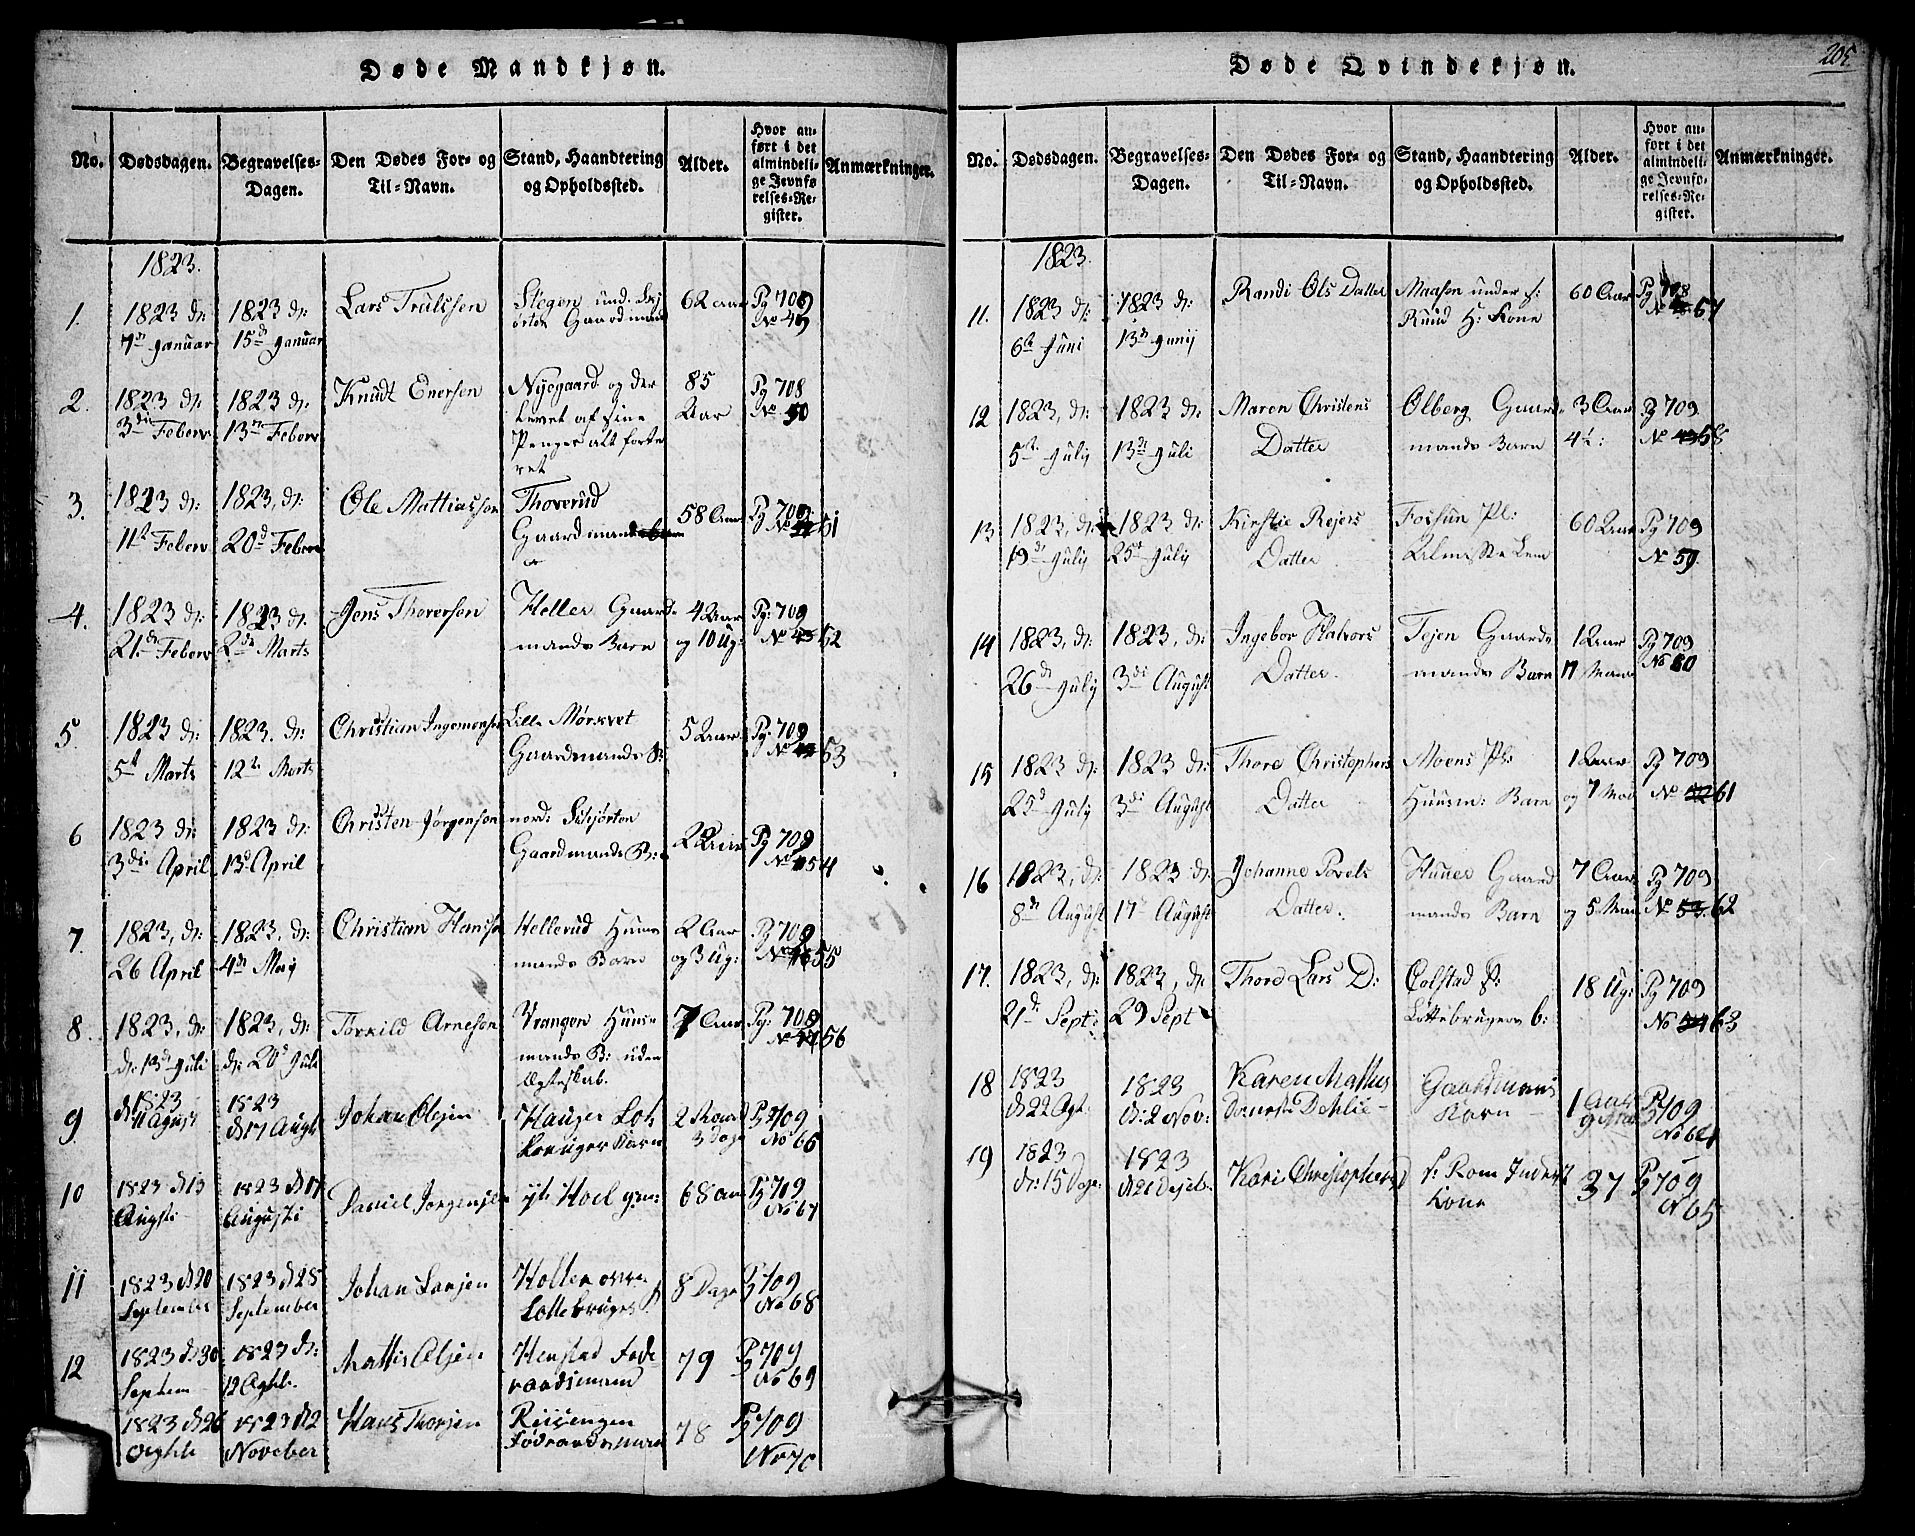 Døde Mandkjøn.
No.
Dødsdagen.
Begravelses-
Dagen.
Den Dødes For- og
Til-Navn.
Stand, Haandtering
og Opholdssted.
Alder.
Hvor an-
ført i det
almindeli-
ge Jevnfø
relses-Re-
gister.
Anmærkninger.
1823.
1.
1823 d:
7de Januar
1823 d:
15d Januar
Lars Trulssen
Stegen und.
Gaardmand
62 aar
Pg 709
No 49
2.
1823 d:
3die Feberv
1823 d:
13n Feberv
Knudt Enersen
Nyegaard og der
Levet af sine
Penger alt forte
ret
85
Aar
Pg 708
No 50
3.
1823 d:
11te Feberv
1823, d:
20d Feberv
Ole Mattiassøn
Thorerud
Gaardmand
58 Aar
Pg 709
No 51
4.
1823 d:
21de Feberv
1823 d:
2de Marts
Jens Thoresen
Heller Gaard-
mands Barn
4 Aar
og 10 Ug:
Pg: 709
No 52
5.
1823 d:
5te Marts
1823. d:
12te Marts
Christian Ingemansen
Lille Mørkvet
Gaardmands B:
5 Aar
Pg. 709
No 53
6
1823 d:
3die April
1823 d:
13d April
Christen Jørgensen
nord:
Gaardmands B:
2 Aar
Pg 709
No 54
7.
1823, d:
26 April
1823. d:
4de Maij
Christian Hansen
Hellerud Huus
mands Barn
2 Aar
og 3 Ug:
Pg 709
No 55
8.
1823, d:
d: 13de Juli
1823, d:
d: 20d Juli
Torkild Arnesen
Vrangen Huus
mands B: uden
Ægteskab.
7 Aar
Pg: 708
No 56
9
1823
d 11 Agust
1823
d 17 Augst
Johan Olsen
Hauger Lots
bruger Barn
2 Maan
3 Dage
Pg 709
No 66
10
1823 d 13
Augsti
1823 d 17
Augusti
Daniel Jørgensen
ytr Hoel
68 aar
Pg 709
No 67
11
1823 d 20
September
1823 d 25
September
Johan Larsen
Holter
Lottebruges
8 Dage
Pg 709
No 68
12
1823 d 30
Septem
1823 d:
12 Octb.
Mattis Olsen
Henstad Føde
raadsmand
79
Pg 709
No 69
1823 d 26
Octbr
1823 d 2
Noveber
Hans Thorsen
Reissengen
Fødraadsmand
78
Pg 709
No 70
Døde Qvindekjøn.
205.
No.
Dødsdagen.
Begravelses-
Dagen.
Den Dødes For- og
Til-Navn.
Stand, Haandtering
og Opholdssted.
Alder.
Hvor an-
ført i det
almindeli-
ge Jevnfø-
relses-Re-
gister.
Anmærkninger.
1823.
11.
1823 d:
6te Juni
1823 d:
13de Junij
Randi Ols Datter
Maasen under
Knud H: Kone
60 Aar
Pg 708
No 57
12
1823, d:
5te July
1823 d:
13de Juli
Maren Christens
Datter
Ølberg Gaard-
mands Barn
3 Aar
4 U:
Pg 709
No 58
13
1823, d:
19de July
1823 d:
25de July
Kirstie Rejers
Datter
Fossum Pl:
Almisse Lem
60 Aar
Pg 709
No 59
14
1823, d:
26de July
1823, d:
3die August
Ingebor Halvors
Datter
Tejen Gaard-
mands Barn
1 Aar
11 Maan
Pg 709
No 60
15
1823 d:
25d July
1823 d:
3die August
Thore Christophers
Datter
Moens Pl:
Huusm: Barn
1 Aar
og 7 Mon
Pg 709
No 61
16
1823, d:
8de August
1823 d:
17de August
Johanne Povels
Datter.
Huuer Gaard
mands Barn
7 Aar
og 5 Maa
Pg 709
No 62
17.
1823, d:
21de Sept:
1823, d:
29 Sept
Thore Lars D:
Colstad
Lottebrugers b:
18 Ug:
Pg 709
No 63
18
1823
d 22 Ogt.
1823
d: 2 Nov:
Karen Mattis
Dehlie
Gaardmans
Barn
1 Aar
9
Pg 709
No 64
19
1823
d: 15 Dsge.
1823
d 21 Desebr
Kari Christophers D
Kone
37
Pg 709
No 65